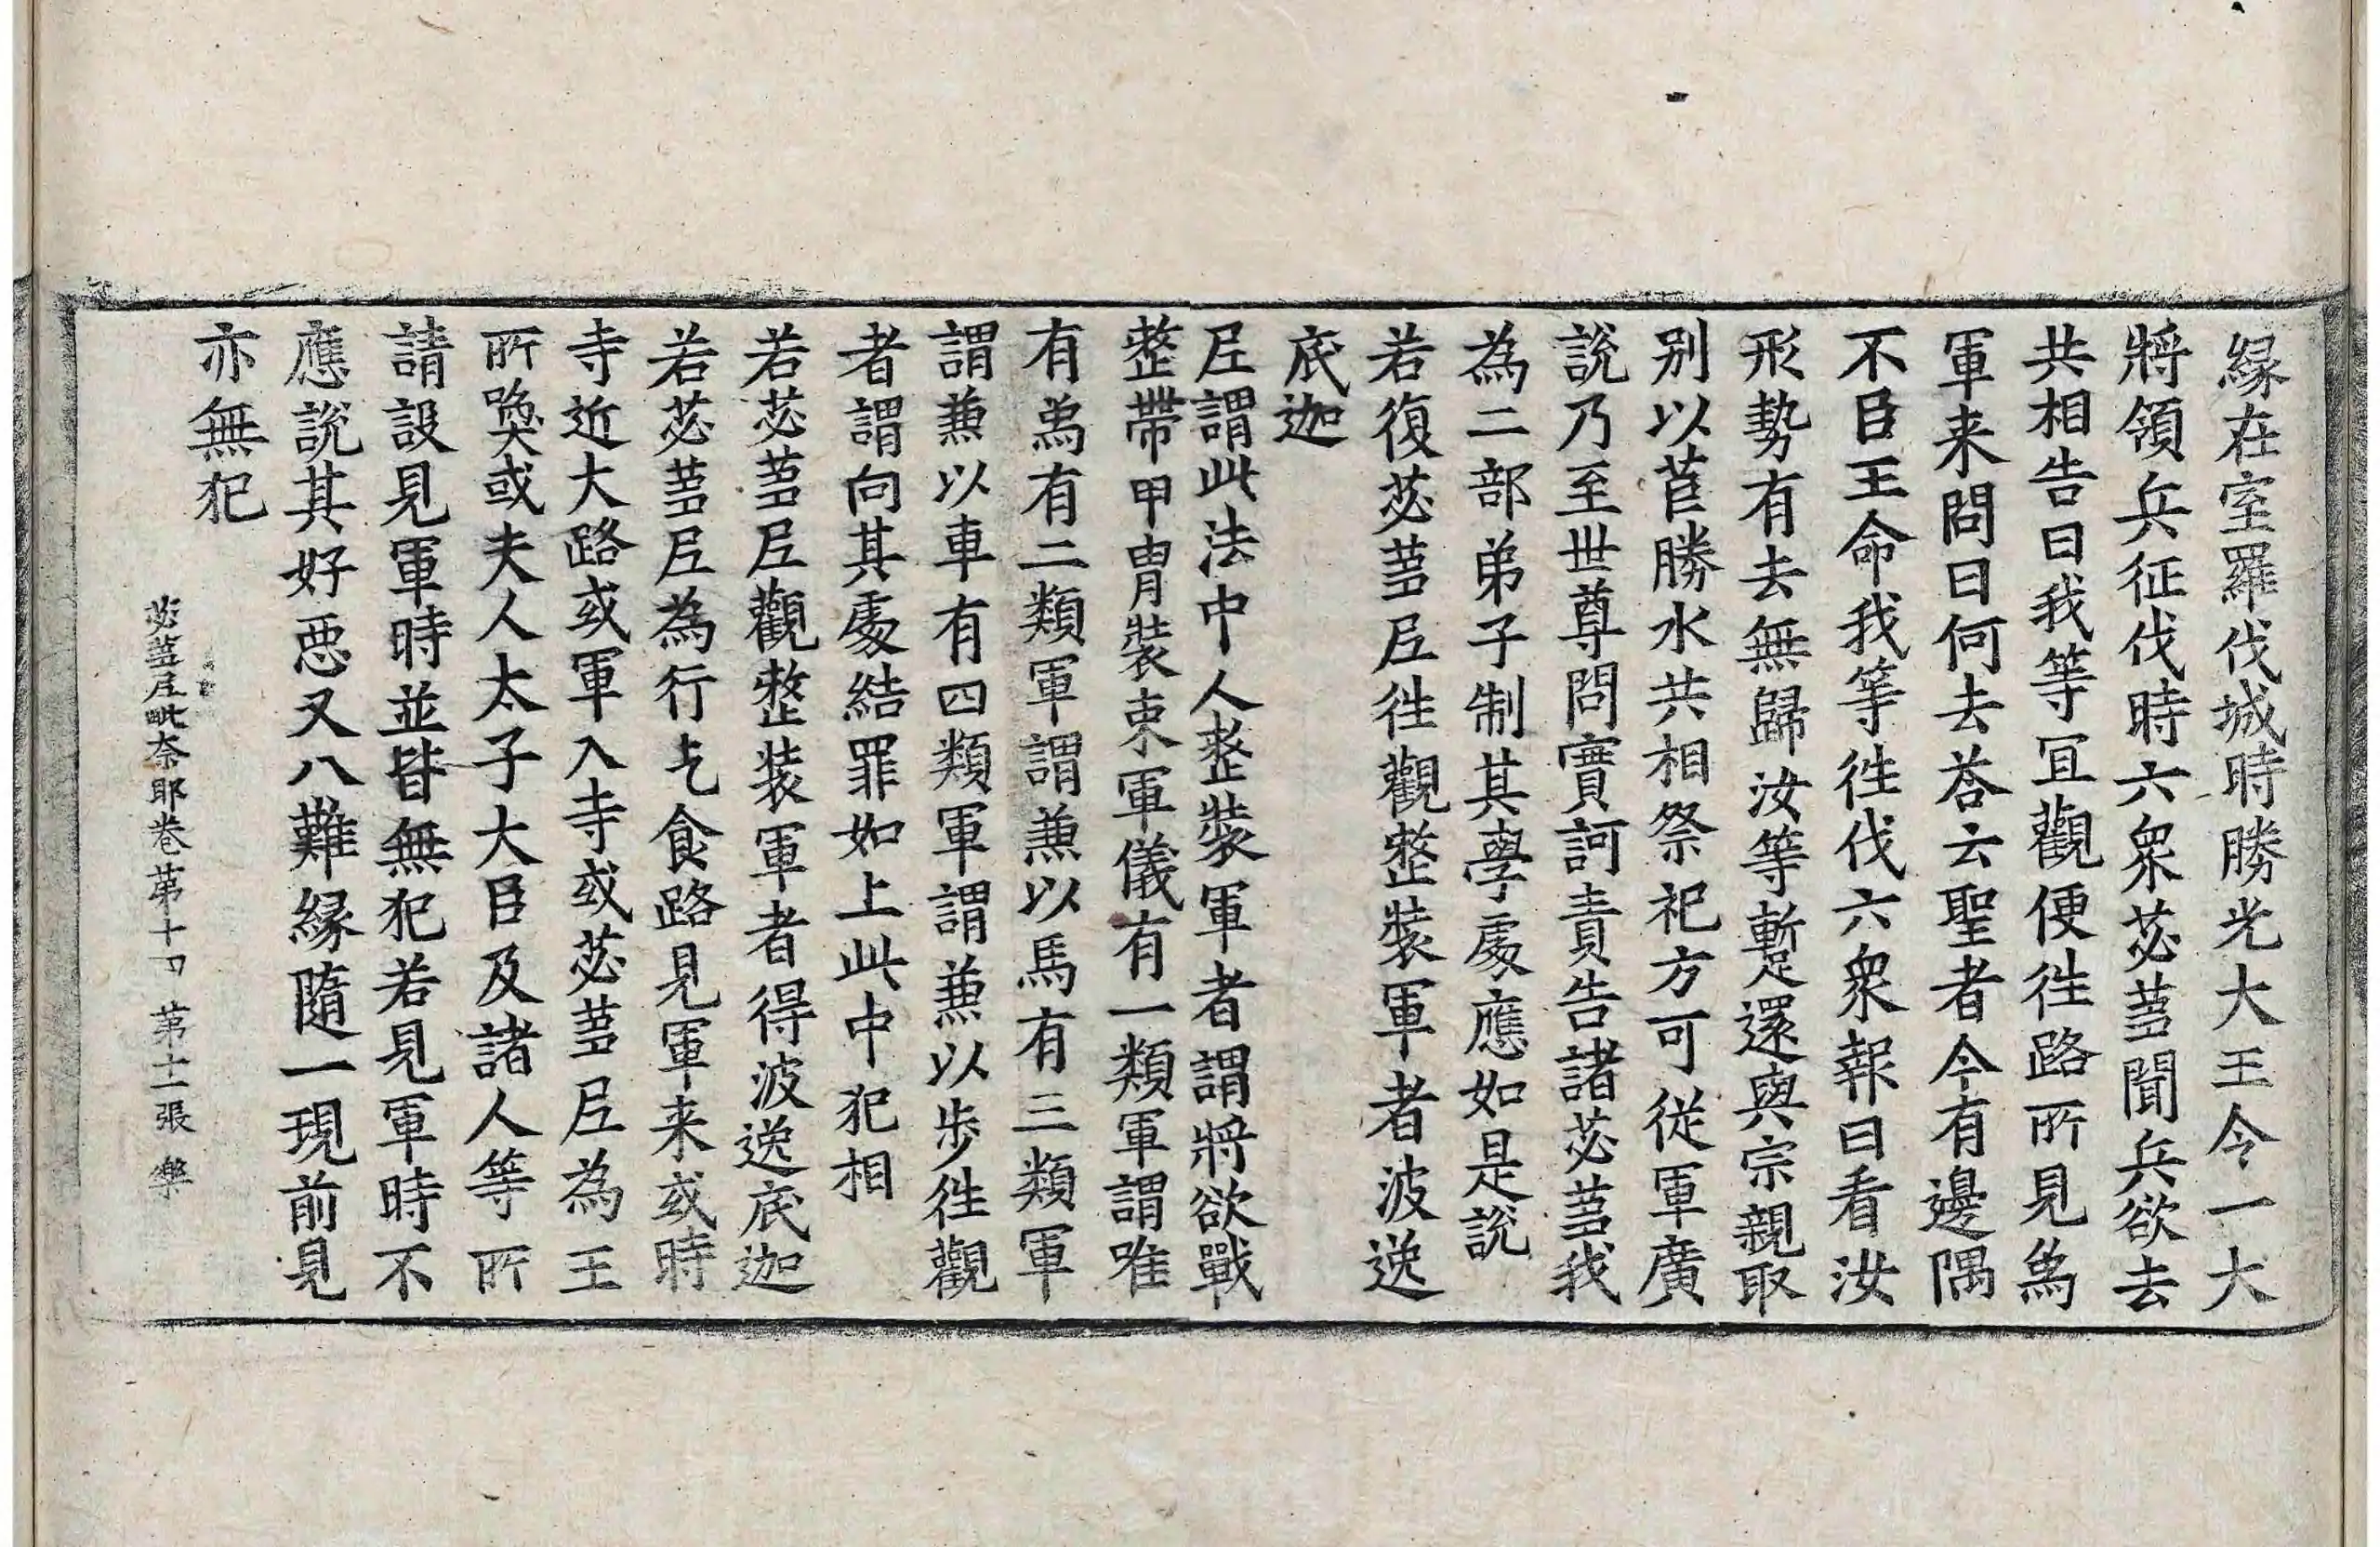 緣在室羅伐城時勝光大王令一大
將領兵征伐時六衆苾蒭聞兵欲去
共相告曰我等冝觀便徃路所見爲
軍来問曰何去荅云聖者今有邊隅
不臣王命我等徃伐六衆報曰看汝
形勢有去無歸汝等暫還與宗親取
别以苣勝水共相祭祀方可從軍廣
說乃至世尊問實訶責告諸苾蒭我
為二部弟子制其學處應如是說
若復苾蒭尼徃觀整裝軍者波逸
底迦
尼謂此法中人整裝軍者謂將欲戰
整帶甲冑裝束軍儀有一類軍謂唯
有爲有二類軍謂兼以馬有三類軍
謂兼以車有四類軍謂兼以步徃觀
者謂向其處結罪如上此中犯相
若苾蒭尼觀整装軍者得波逸底迦
若苾蒭尼為行乞食路見軍来或時
寺近大路或軍入寺或苾蒭尼為王
所喚或夫人太子大臣及諸人等所
請設見軍時並皆無犯若見軍時不
應說其好惡又八難緣隨一現前見
亦無犯
苾蒭尼毗奈耶卷第十四 第十一張 樂